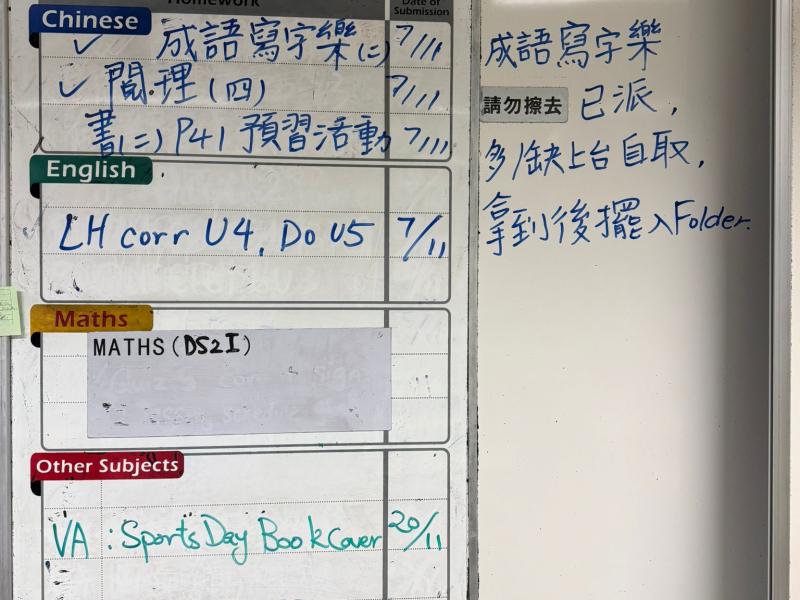 Homework
Date of Submission
Chinese
✓ 成語寫字樂(二) 7/11
✓ 閱.理(四) 7/11
書(二) P41 預習活動 7/11
English
LH corr U4, Do U5 7/11
Maths
MATHS(DS2I)
Other Subjects
VA : Sports Day Book Cover 20/11
成語寫字樂
請勿擦去 已派,
多/缺上台自取,
拿到後擺入Folder.